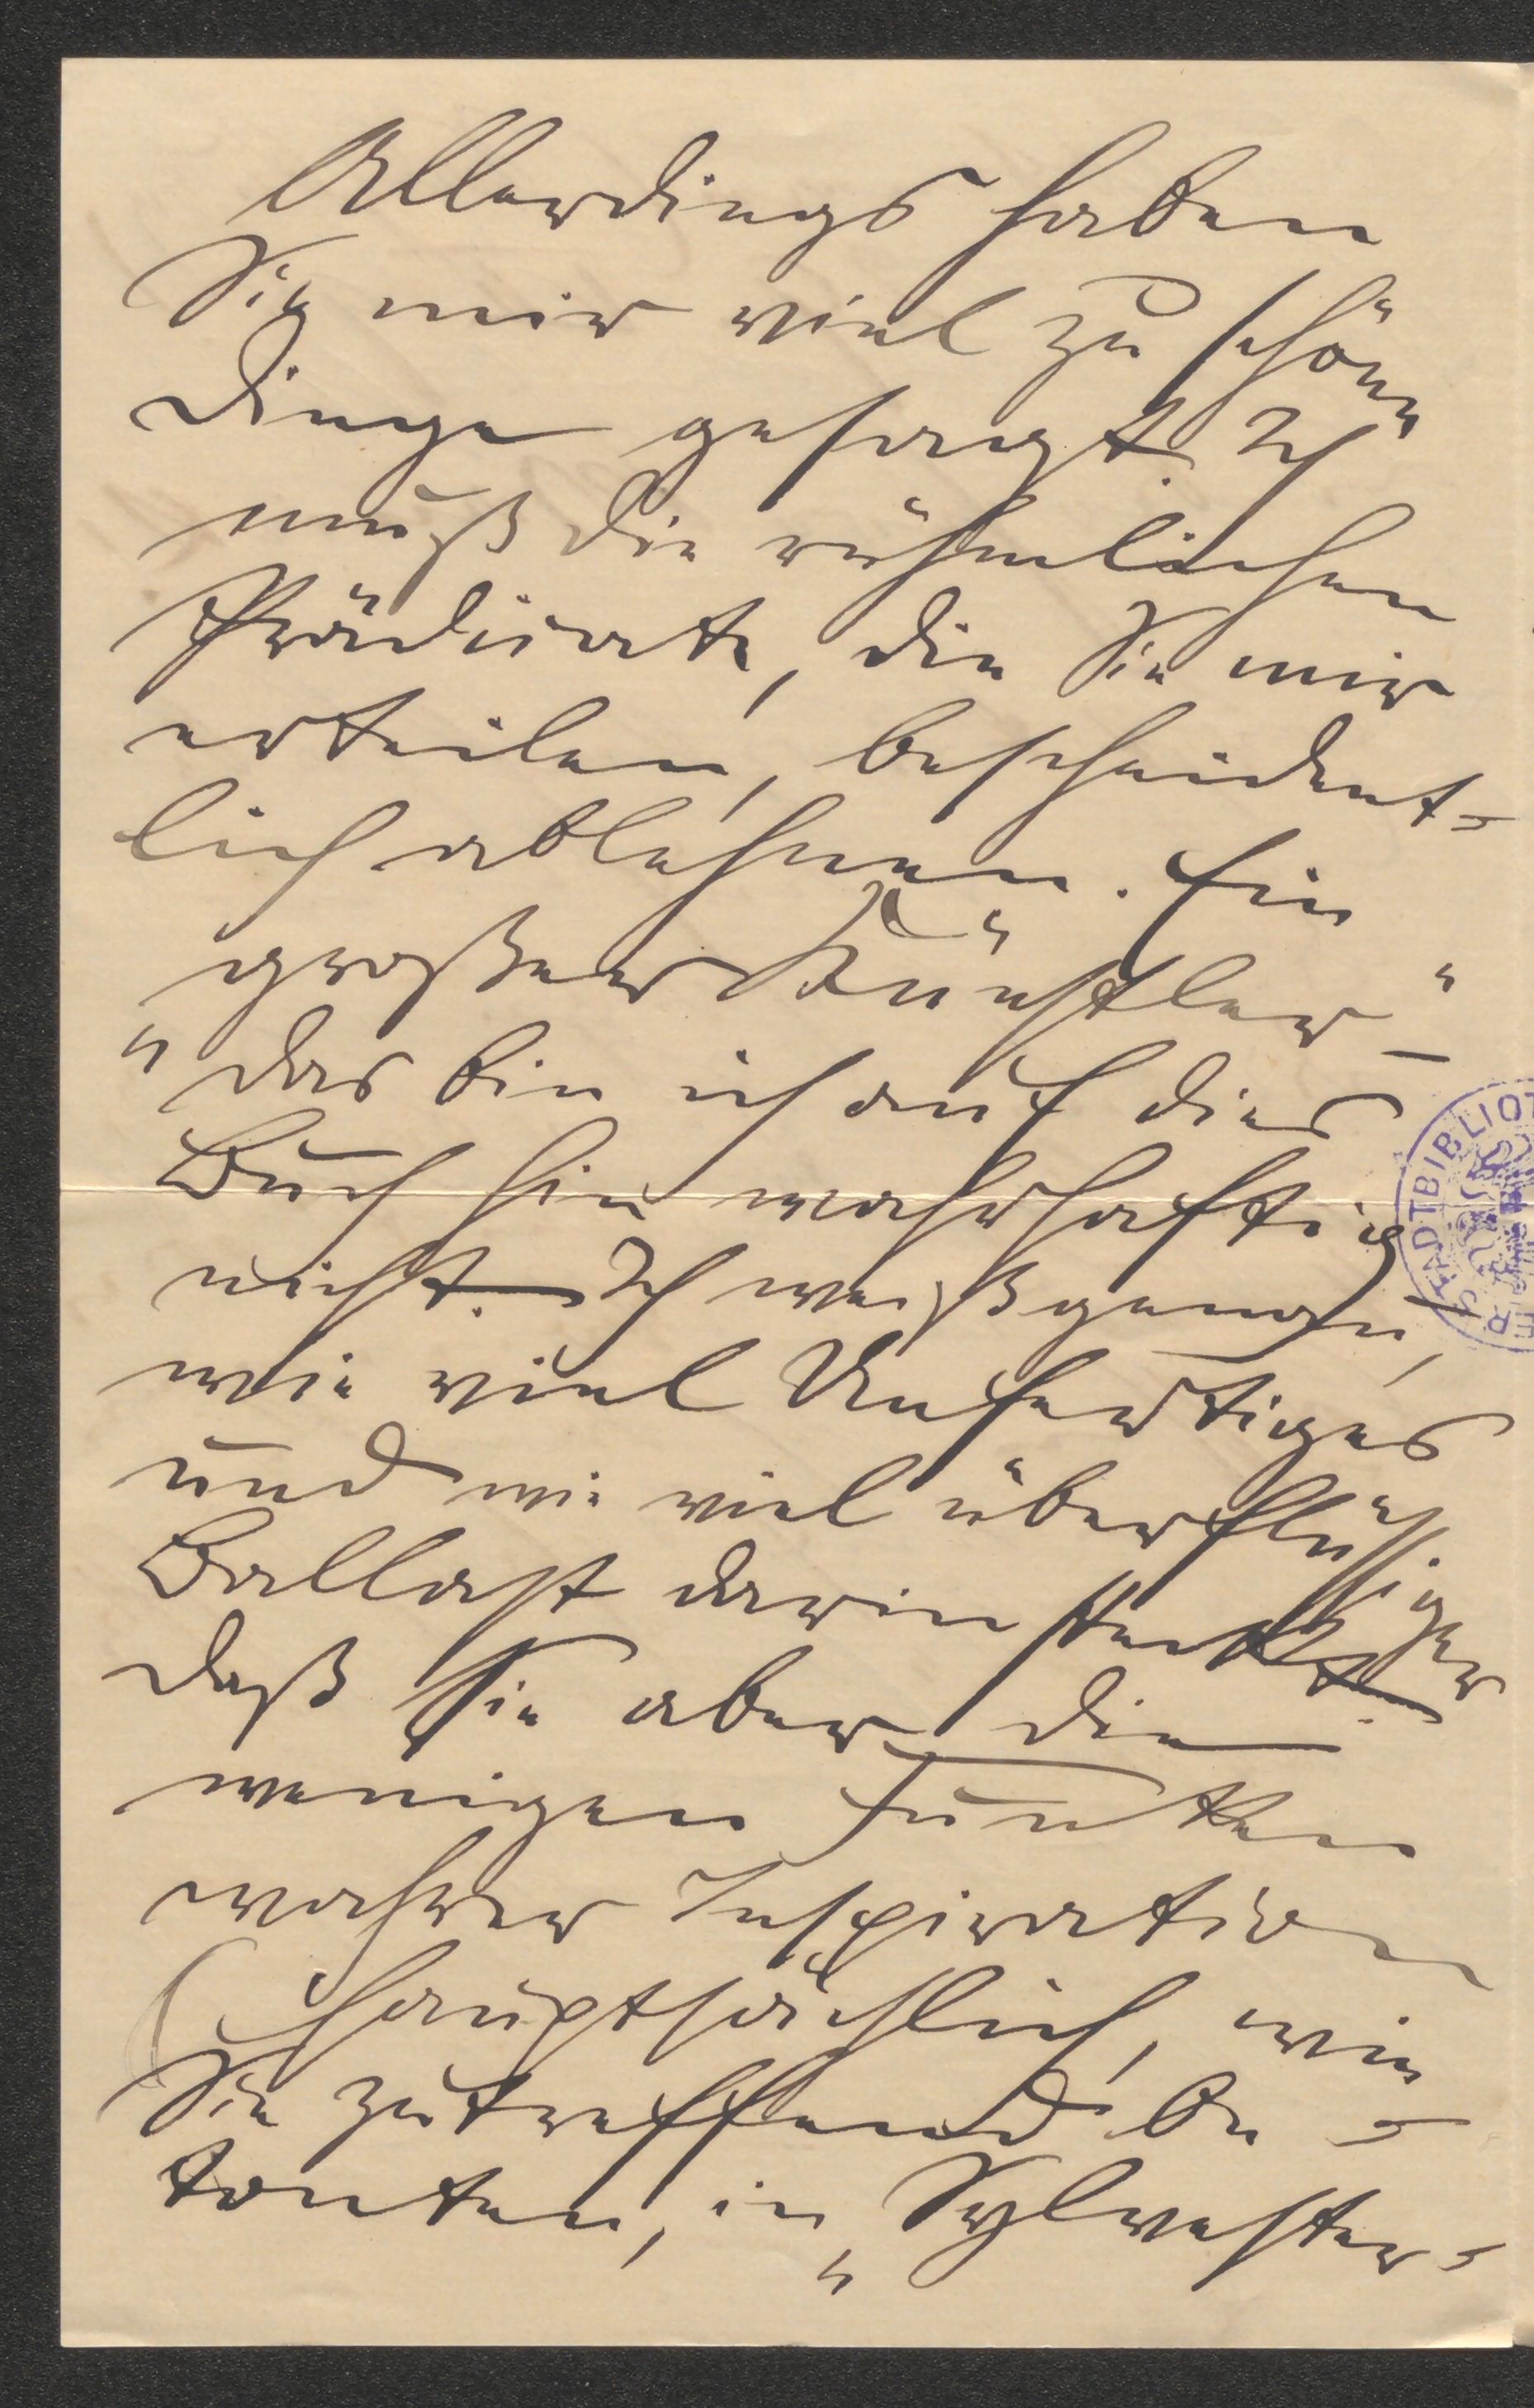 Allerdings haben
Sie mir viel zu schöne
Dinge gesagt. Ich
muß die rühmlichen
Prädicate, die Sie mir
erteilen, bescheident-
lich ablehnen. Ein
„großer Künstler“ –
das bin ich auf dies
Buch hin wahrhaftig
nicht. – Ich weiß genau,
wie viel Unfertiges
und wie viel überflüssiger
Ballast darin steckt.
Daß Sie aber die
wenigen Funken
wahrer Inspiration
(hauptsächlich, wie
Sie zutreffend be-
tonten, in „Sylvester-
STADTBIBLIOT